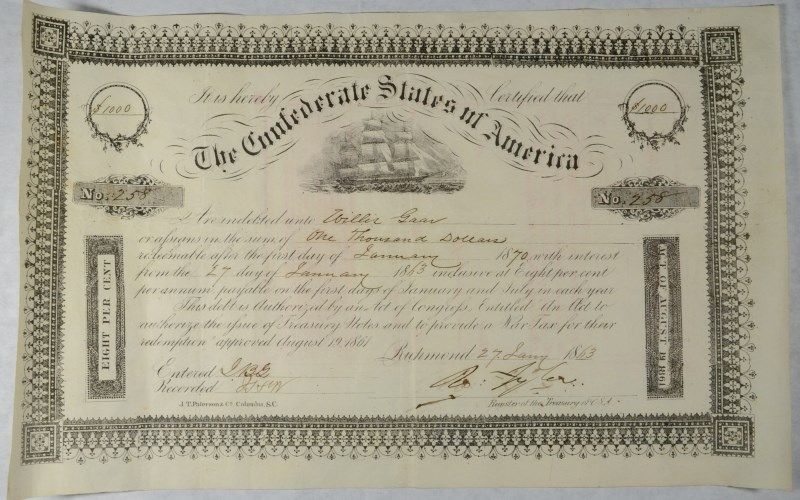 It is hereby Certified that
The Confederate States of America
$1000
$1000
No. 258
No. 258
Are indebted unto Willie Gaar
or assigns in the sum of One Thousand Dollars
redeemable after the first day of January 1870, with interest
from the 27 day of January 1863 inclusive at Eight per cent
per annum payable on the first days of January and July in each year
This debt is Authorized by an Act of Congress, Entitled "An Act to
authorize the issue of Treasury Notes and to provide a War Tax for their
redemption" approved August 19, 1861
EIGHT PER CENT
ACT OF AUGUST 19 1861
Richmond 27 Jany 1863
Entered
Recorded
Ro: Tyler.
J.T. Paterson & Co. Columbia, S.C.
Register of the Treasury of C.S.A.